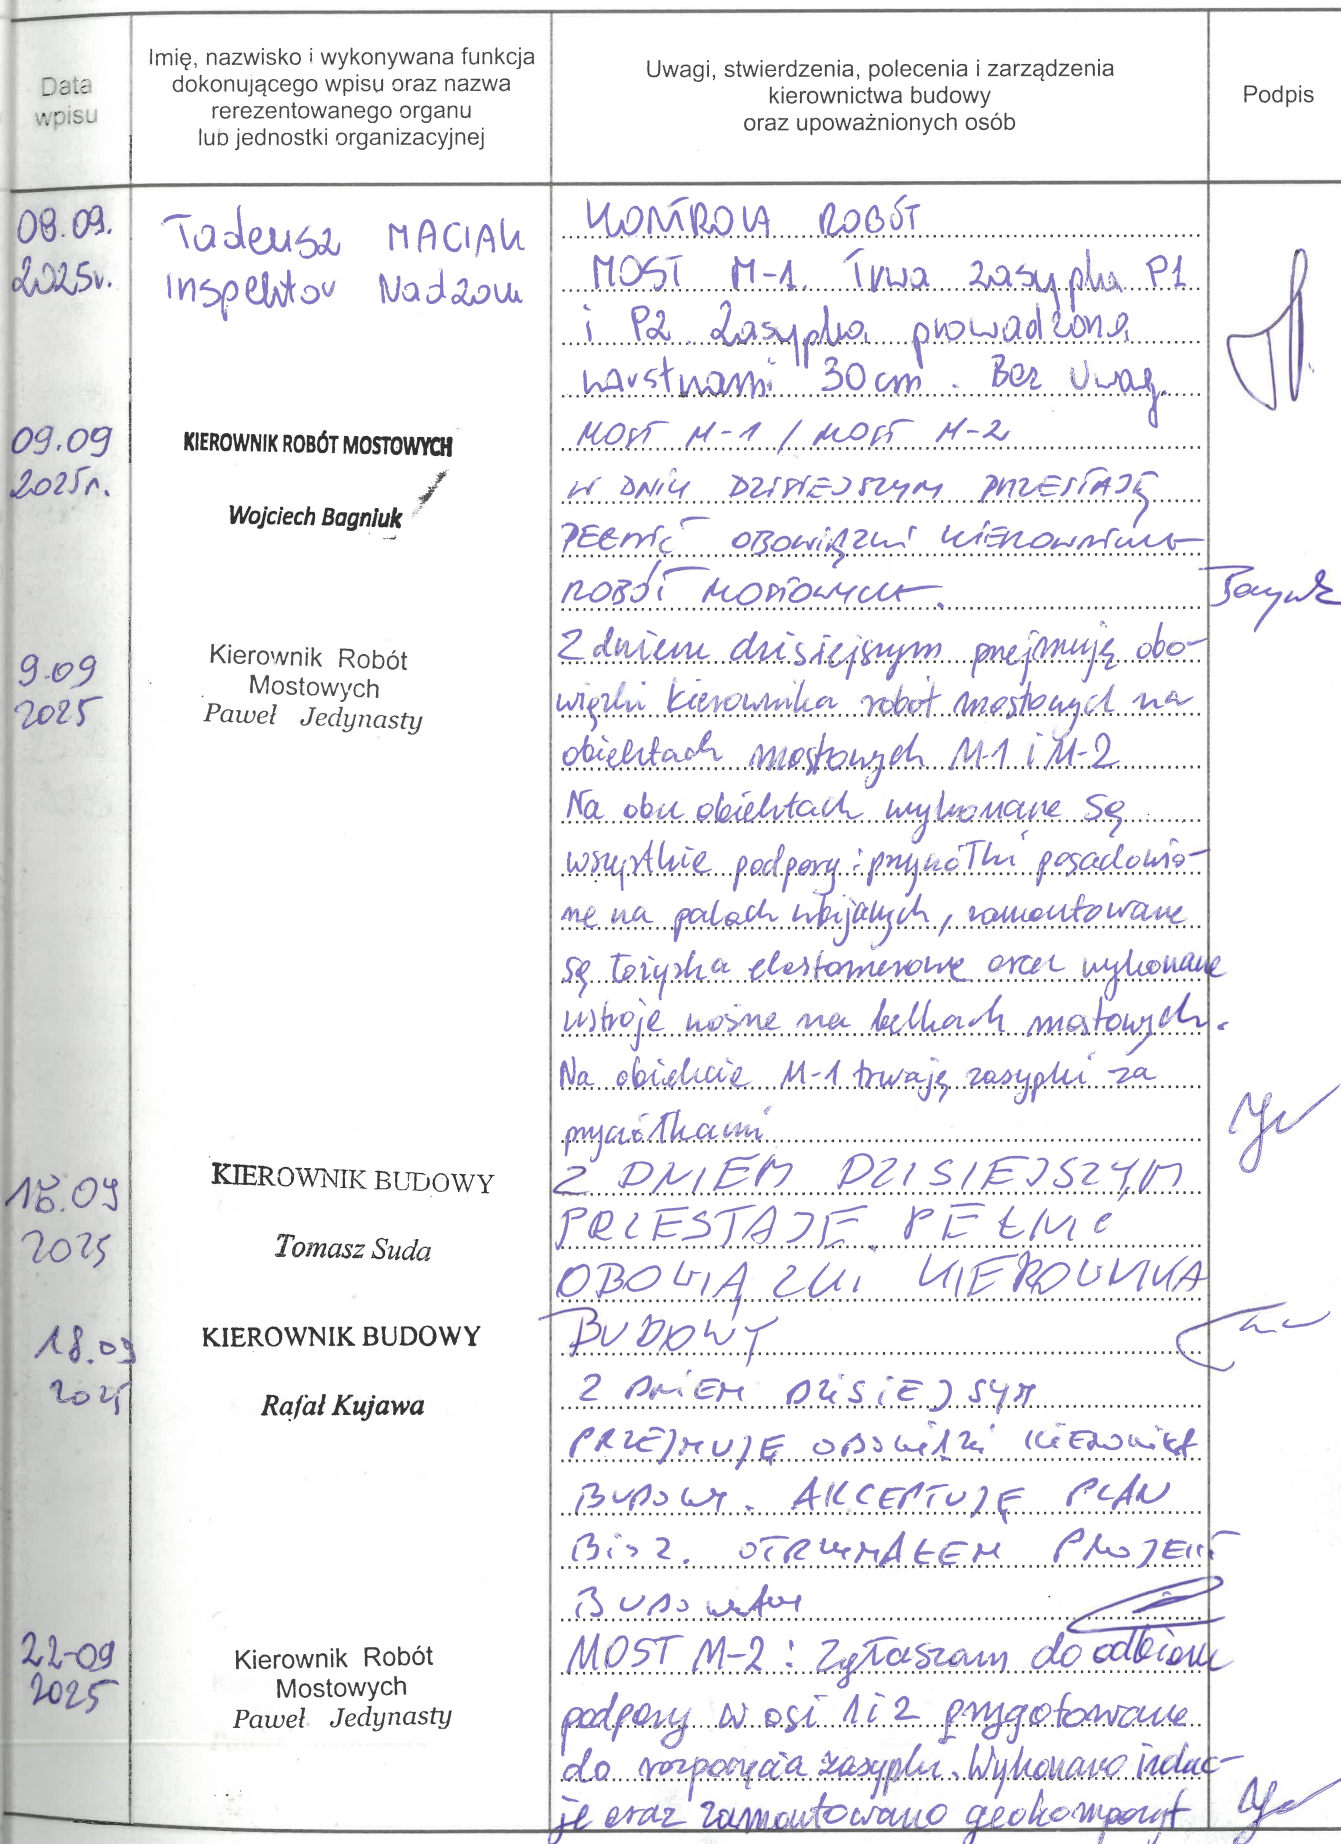 Data
wpisu
Imię, nazwisko i wykonywana funkcja
dokonującego wpisu oraz nazwa
rerezentowanego organu
lub jednostki organizacyjnej
Uwagi, stwierdzenia, polecenia i zarządzenia
kierownictwa budowy
oraz upoważnionych osób
Podpis
08.09.
2025r.
Tadeusz MACIAK
Inspektor Nadzoru
KONTROLA ROBÓT
MOST M-1. Trwa zasypka P1
i P2. Zasypka prowadzona
warstwami 30cm. Bez Uwag.
09.09
2025r.
KIEROWNIK ROBÓT MOSTOWYCH
Wojciech Bagniuk
MOST M-1 / MOST M-2
W DNIU DZISIEJSZYM PRZESTAJĘ
PEŁNIĆ OBOWIĄZKI KIEROWNIKA
ROBÓT MOSTOWYCH.
9.09
2025
Kierownik Robót
Mostowych
Paweł Jedynasty
Z dniem dzisiejszym przejmuję obo-
wiązki kierownika robót mostowych na
obiektach mostowych M-1 i M-2
Na obu obiektach wykonane są
wszystkie podpory i przyczółki posadowio-
ne na palach wbijanych, zamontowane
są łożyska elastomerowe oraz wykonane
ustroje nośne na belkach mostowych.
Na obiekcie M-1 trwają zasypki za
przyczółkami
18.09
2025
KIEROWNIK BUDOWY
Tomasz Suda
Z DNIEM DZISIEJSZYM
PRZESTAJĘ PEŁNIĆ
OBOWIĄZKI KIEROWNIKA
BUDOWY
18.09
2025
KIEROWNIK BUDOWY
Rafał Kujawa
Z DNIEM DZISIEJSYM
PRZEJMUJĘ OBOWIĄZKI KIEROWNIKA
BUDOWY. AKCEPTUJĘ PLAN
BIOZ. OTRZYMAŁEM PROJEKT
BUDOWLANY
22-09
2025
Kierownik Robót
Mostowych
Paweł Jedynasty
MOST M-2: Zgłaszam do odbioru
podpory w osi 1 i 2 przygotowane
do rozpoczęcia zasypki. Wykonano izolac-
je oraz zamontowano geokompozyt